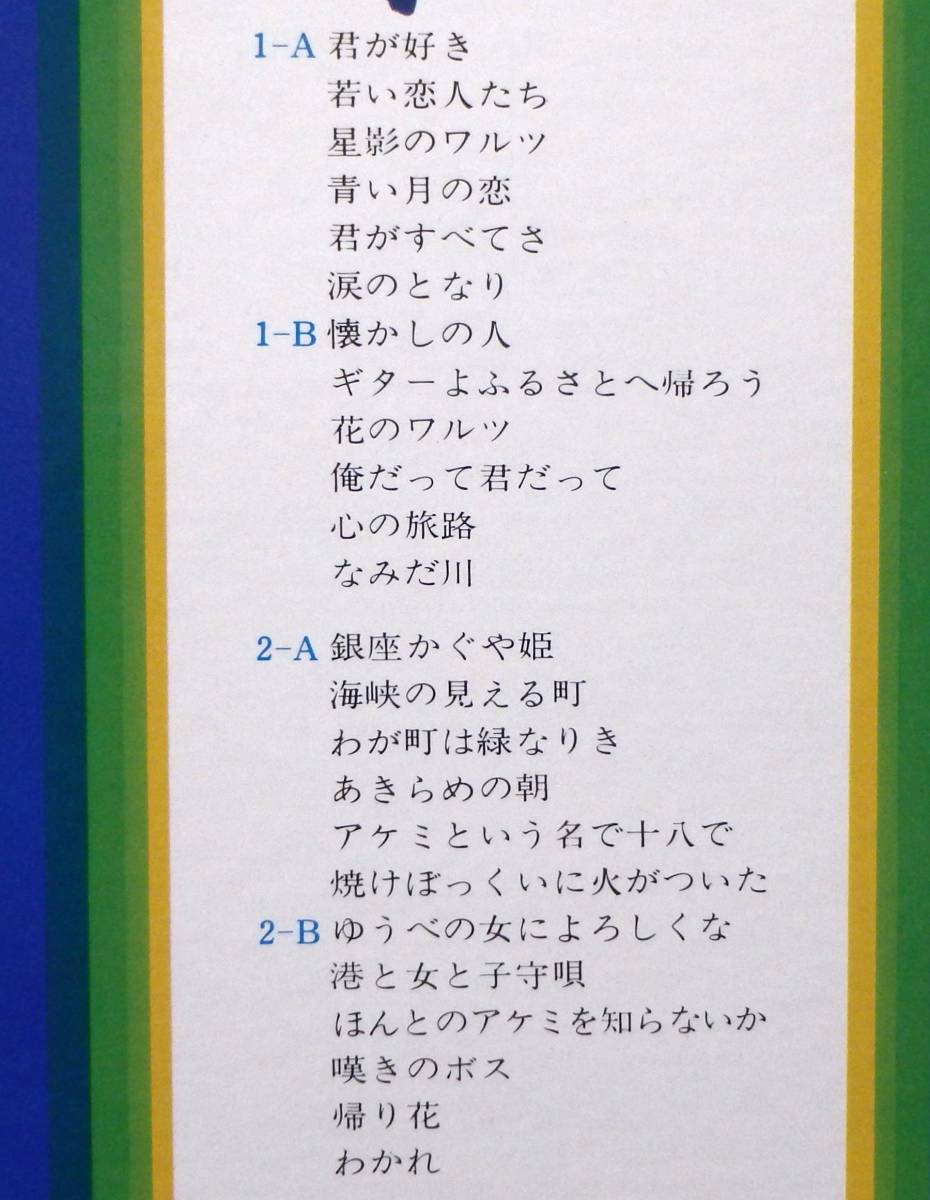 1-A 君が好き
若い恋人たち
星影のワルツ
青い月の恋
君がすべてさ
涙のとなり
1-B 懐かしの人
ギターよふるさとへ帰ろう
花のワルツ
俺だって君だって
心の旅路
なみだ川
2-A 銀座かぐや姫
海峡の見える町
わが町は緑なりき
あきらめの朝
アケミという名で十八で
焼けぼっくいに火がついた
2-B ゆうべの女によろしくな
港と女と子守唄
ほんとのアケミを知らないか
嘆きのボス
帰り花
わかれ